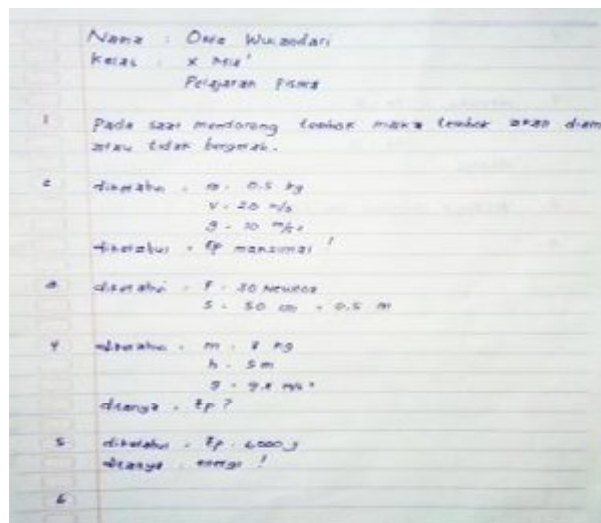 Nama : Wulandari
Kelas : X Mia'
Pelajaran Fisika
1 Pada saat mendorong tembok maka tembok akan diam
atau tidak bergerak.
2 diketahui : m = 0.5 kg
v = 20 m/s
g = 10 m/s²
diketahui : Ep maksimal !
3 diketahui : F = 30 Newton
s = 50 cm = 0.5 m
4 diketahui : m = kg
h = 5 m
g = 9.8 m/s²
ditanya = Ep ?
5 diketahui : Ep = J
ditanya = energi !
6